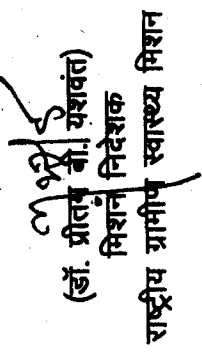 (डॉ. प्रीतम बी. यशवंत)
मिशन निदेशक
राष्ट्रीय ग्रामीण स्वास्थ्य मिशन